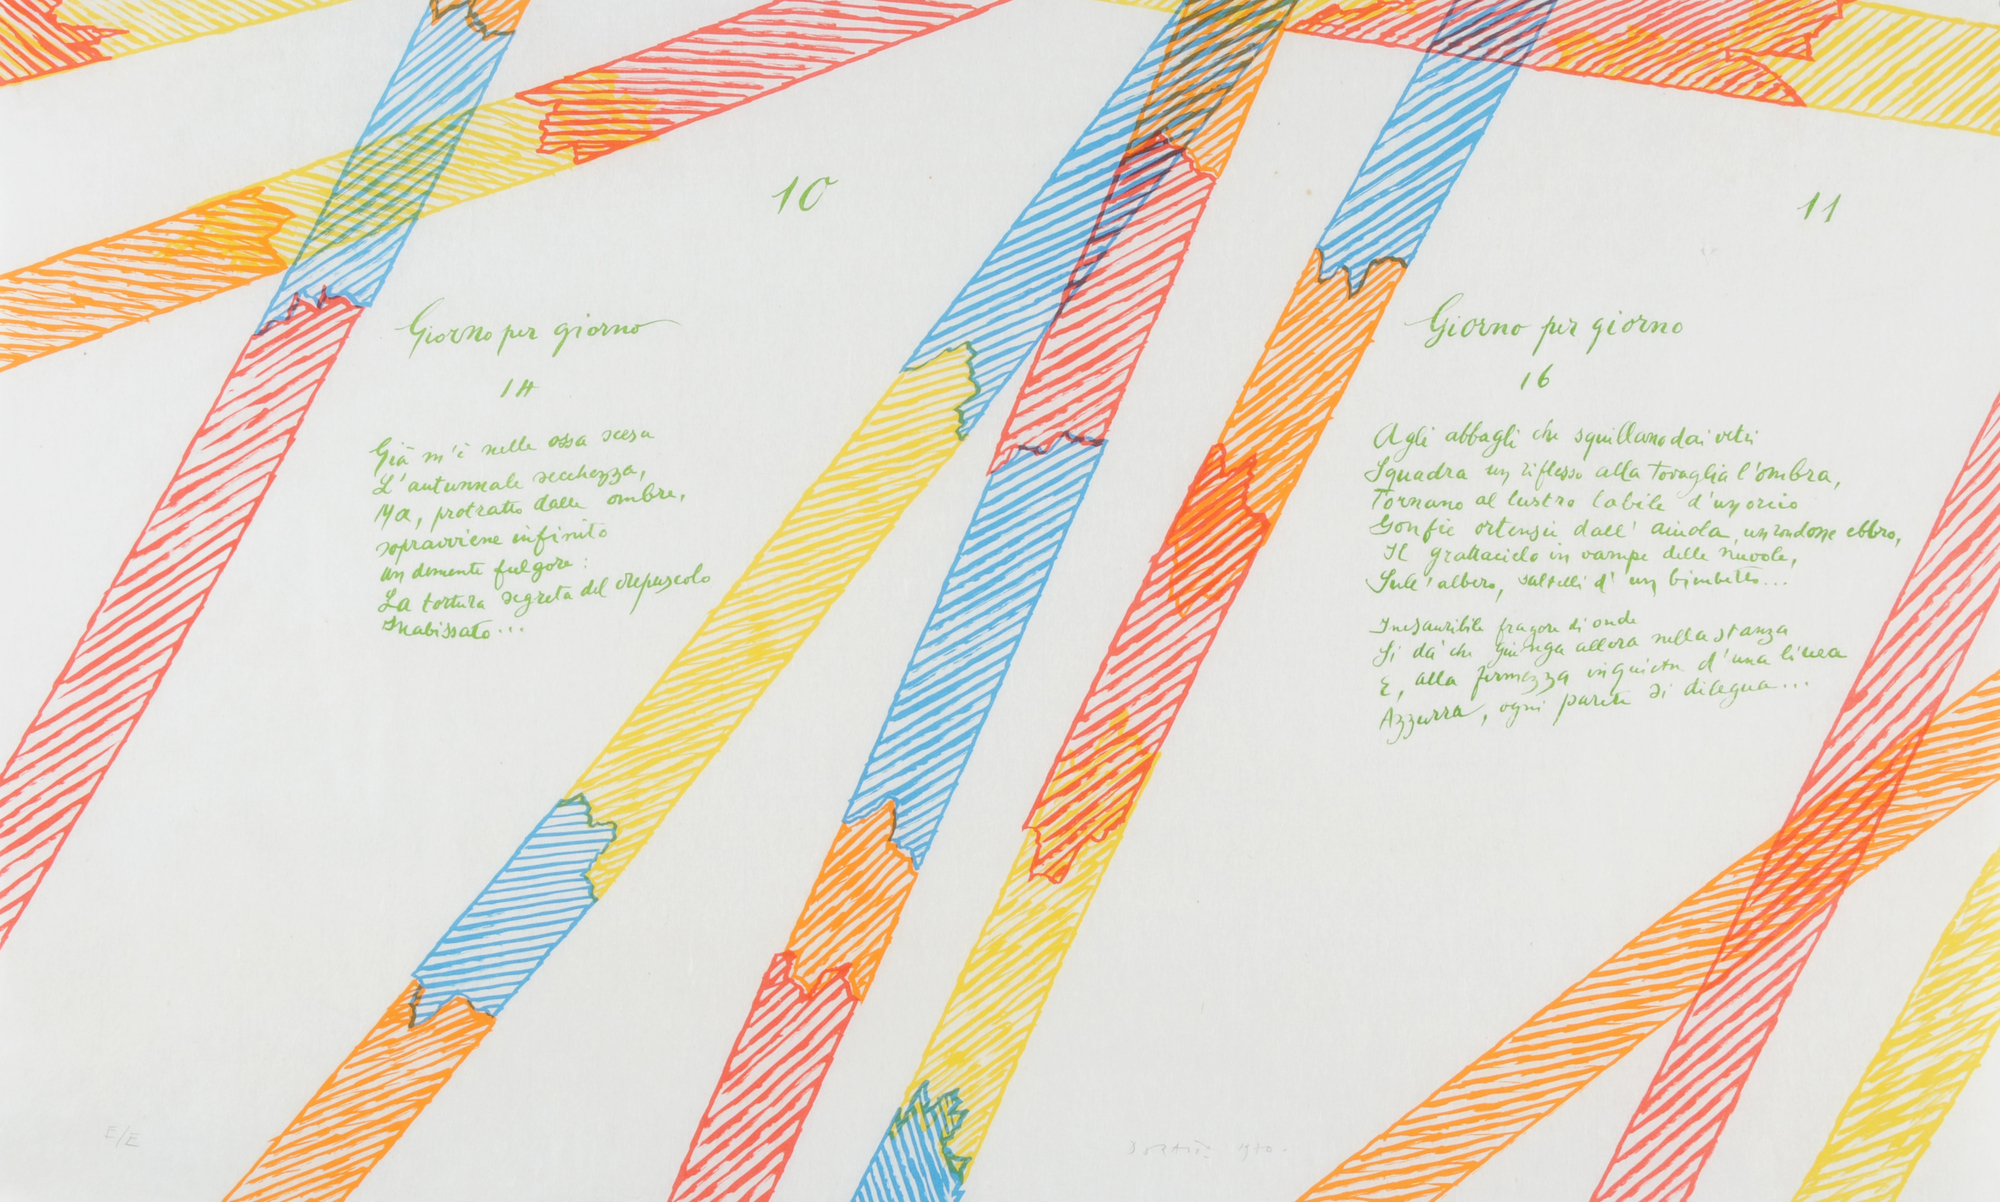 10
Giorno per giorno
14
Già m'è nelle ossa scesa
L'autunnale secchezza,
Ma, protratto dalle ombre,
sopravviene infinito
un demente fulgore:
La tortura segreta del crepuscolo
Inabissato...
11
Giorno per giorno
16
Agli abbagli che squillano dai vetri
Squadra un riflesso alla tovaglia l'ombra,
Tornano al lustro labile d'un orcio
Gonfie ortensie dall'aiuola, un rondone ebbro,
Il grattacielo in vampe delle nuvole,
Sull'albero, saltelli d'un bimbetto...
Inesauribile fragore di onde
Si dà che giunga allora nella stanza
E, alla fermezza inquieta d'una linea
Azzurra, ogni parete si dilegua...
E/E
DORAZIO 1970.